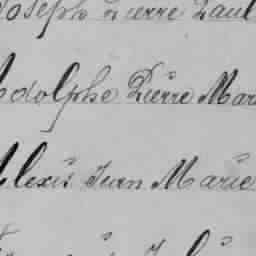 Joseph Pierre Paul
Adolphe Pierre Mar
Alexis Jean Marie